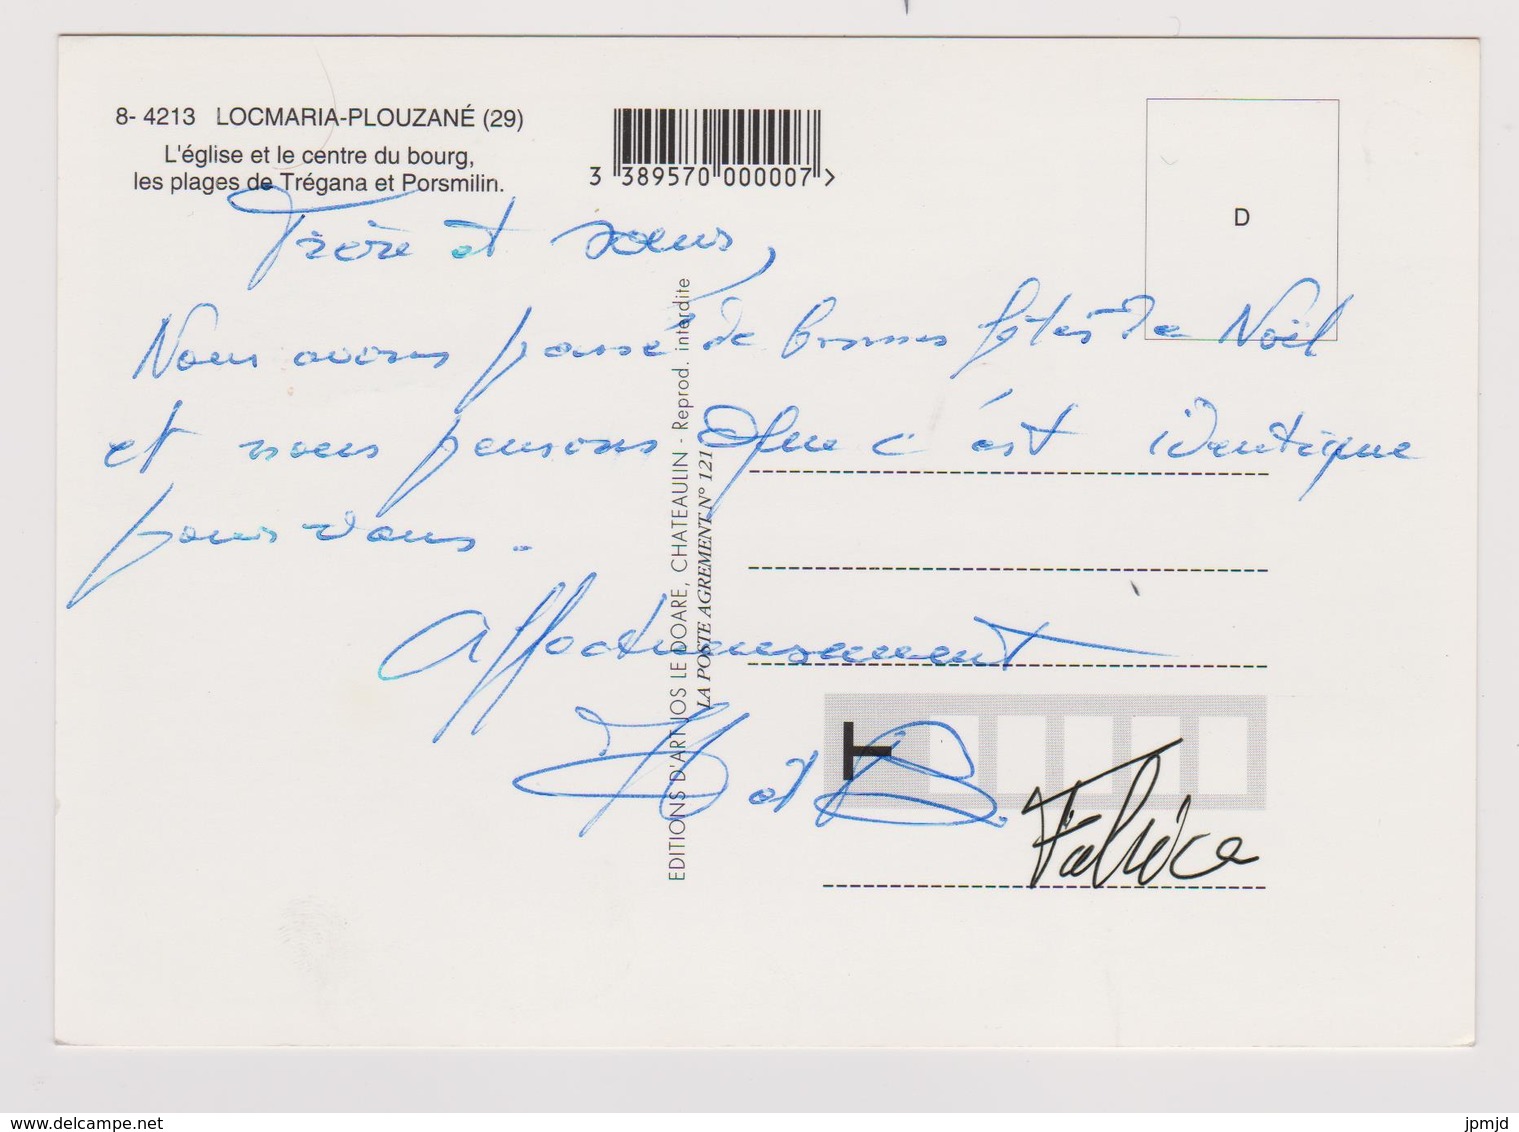 8- 4213 LOCMARIA-PLOUZANÉ (29)
L'église et le centre du bourg,
les plages de Trégana et Porsmilin.
3 389570 000007 >
D
Frère et sœur,
Nous avons passé de bonnes fêtes de Noël
et nous pensons que c'est identique
pour vous.
Affectueusement
et
Fabrice
T
EDITIONS D'ART JOS LE DOARE, CHATEAULIN - Reprod. interdite
LA POSTE AGREMENT N° 121
www.delcampe.net
jpmjd